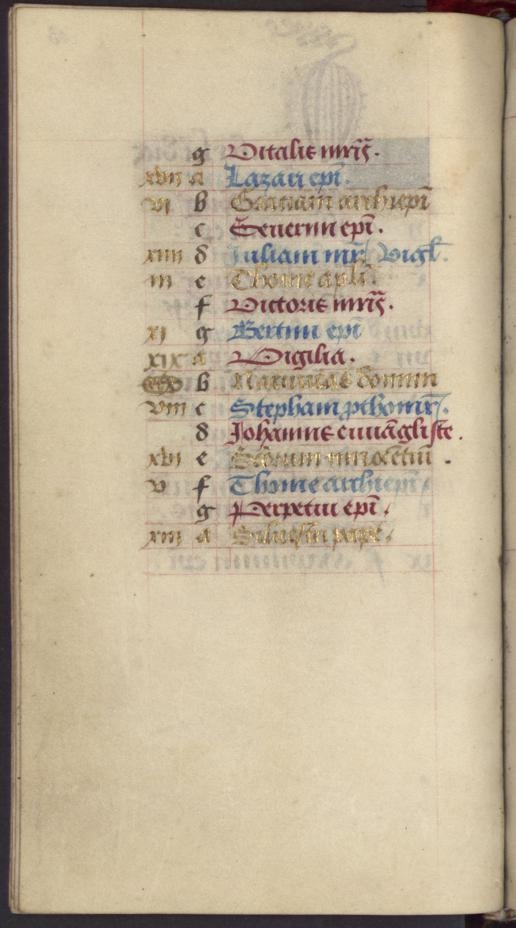 g Vitalis mr̄is.
xvii a Lazari epī.
vi b Gatiani archiepī
c Seuerini epī.
xiiii d Iuliani mr̄. Vigl'.
iii e Thome apli.
f Victoris mr̄is.
xi g Bertini epī
xix a Vigilia.
b Natiuitas domini
viii c Stephani pthomr̄.
d Johannis euuāgliste.
xvi e Sctorum innocētiū.
v f Thome archiepī
g Perpetui epī.
xiii a Siluestri pape.